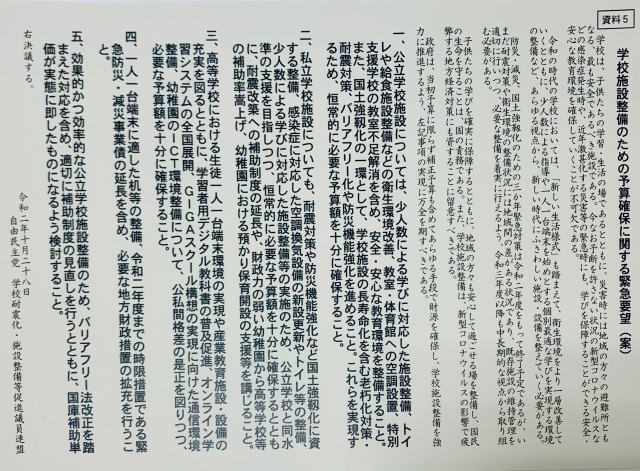 資料5
学校施設整備のための予算確保に関する緊急要望（案）
学校は、子供たちの学習・生活の場であるとともに、災害時には地域の方々の避難所とも
なる、最も安全であるべき施設である。今なお予断を許さない状況の新型コロナウイルスな
どの感染症発生時や、近年激甚化する災害等の緊急時にも、学びを保障することができる安全・
安心な教育環境を確保していくことが不可欠である。
令和の時代の学校においては、「新しい生活様式」も踏まえて、衛生環境をより一層改善して
いくとともに、少人数による指導や「一人一台端末」が始まることによる個別最適な学びを実現する環境
の整備など、あらゆる視点から、新しい時代にふさわしい施設・設備を整えていく必要がある。
防災・減災、国土強靱化のための三か年緊急対策は令和二年度をもって終了予定であるが、い
まだ耐震対策や衛生環境の整備状況には地域間の差がある状況であり、既存施設の維持管理を
適切に行いつつ、必要な整備を着実に行えるよう、令和三年度以降も中長期的な視点から取り組
む必要がある。
子供たちの学びを確実に保障するとともに、地域の方々も安心して過ごせる場を整備し、国民
の生命を守ることは、国の責務である。また、学校施設整備は、新型コロナウイルスの影響で疲
弊する地方経済対策にも資することに留意すべきである。
政府は、当初予算に限らず補正予算も含めあらゆる手段で財源を確保し、学校施設整備を強
力に推進するよう、左記事項の実現に万全を期すべきである。
一、公立学校施設については、少人数による学びに対応した施設整備、トイ
レや給食施設整備などの衛生環境改善、教室・体育館への空調設置、特別
支援学校の教室不足解消を含め、安全・安心な教育環境を整備すること。
また、国土強靱化の一環として、学校施設の長寿命化を含む老朽化対策・
耐震対策、バリアフリー化や防災機能強化を進めること。これらを実現す
るため、恒常的に必要な予算額を十分に確保すること。
二、私立学校施設についても、耐震対策や防災機能強化など国土強靱化に資
する整備、感染症に対応した空調換気設備の新設更新やトイレ等の整備、
少人数による学びに対応した施設整備等の実施のため、公立学校と同水
準の支援を目指しつつ、恒常的に必要な予算額を十分に確保するととも
に、耐震改築への補助制度の延長や、財政力の弱い幼稚園から高等学校等
の補助率嵩上げ、幼稚園における預かり保育開設の支援等を講じること。
三、高等学校における生徒一人一台端末環境の実現や産業教育施設・設備の
充実を図るとともに、学習者用デジタル教科書の普及促進、オンライン学
習システムの全国展開、GIGAスクール構想の実現に向けた通信環境
整備、幼稚園のICT環境整備について、公私間格差の是正を図りつつ、
必要な予算額を十分に確保すること。
四、一人一台端末に適した机等の整備、令和二年度までの時限措置である緊
急防災・減災事業債の延長を含め、必要な地方財政措置の拡充を行うこ
と。
五、効果的かつ効率的な公立学校施設整備のため、バリアフリー法改正を踏
まえた対応を含め、適切に補助制度の見直しを行うとともに、国庫補助単
価が実態に即したものになるよう検討すること。
右決議する。
令和二年十月二十八日
自由民主党 学校耐震化・施設整備等促進議員連盟